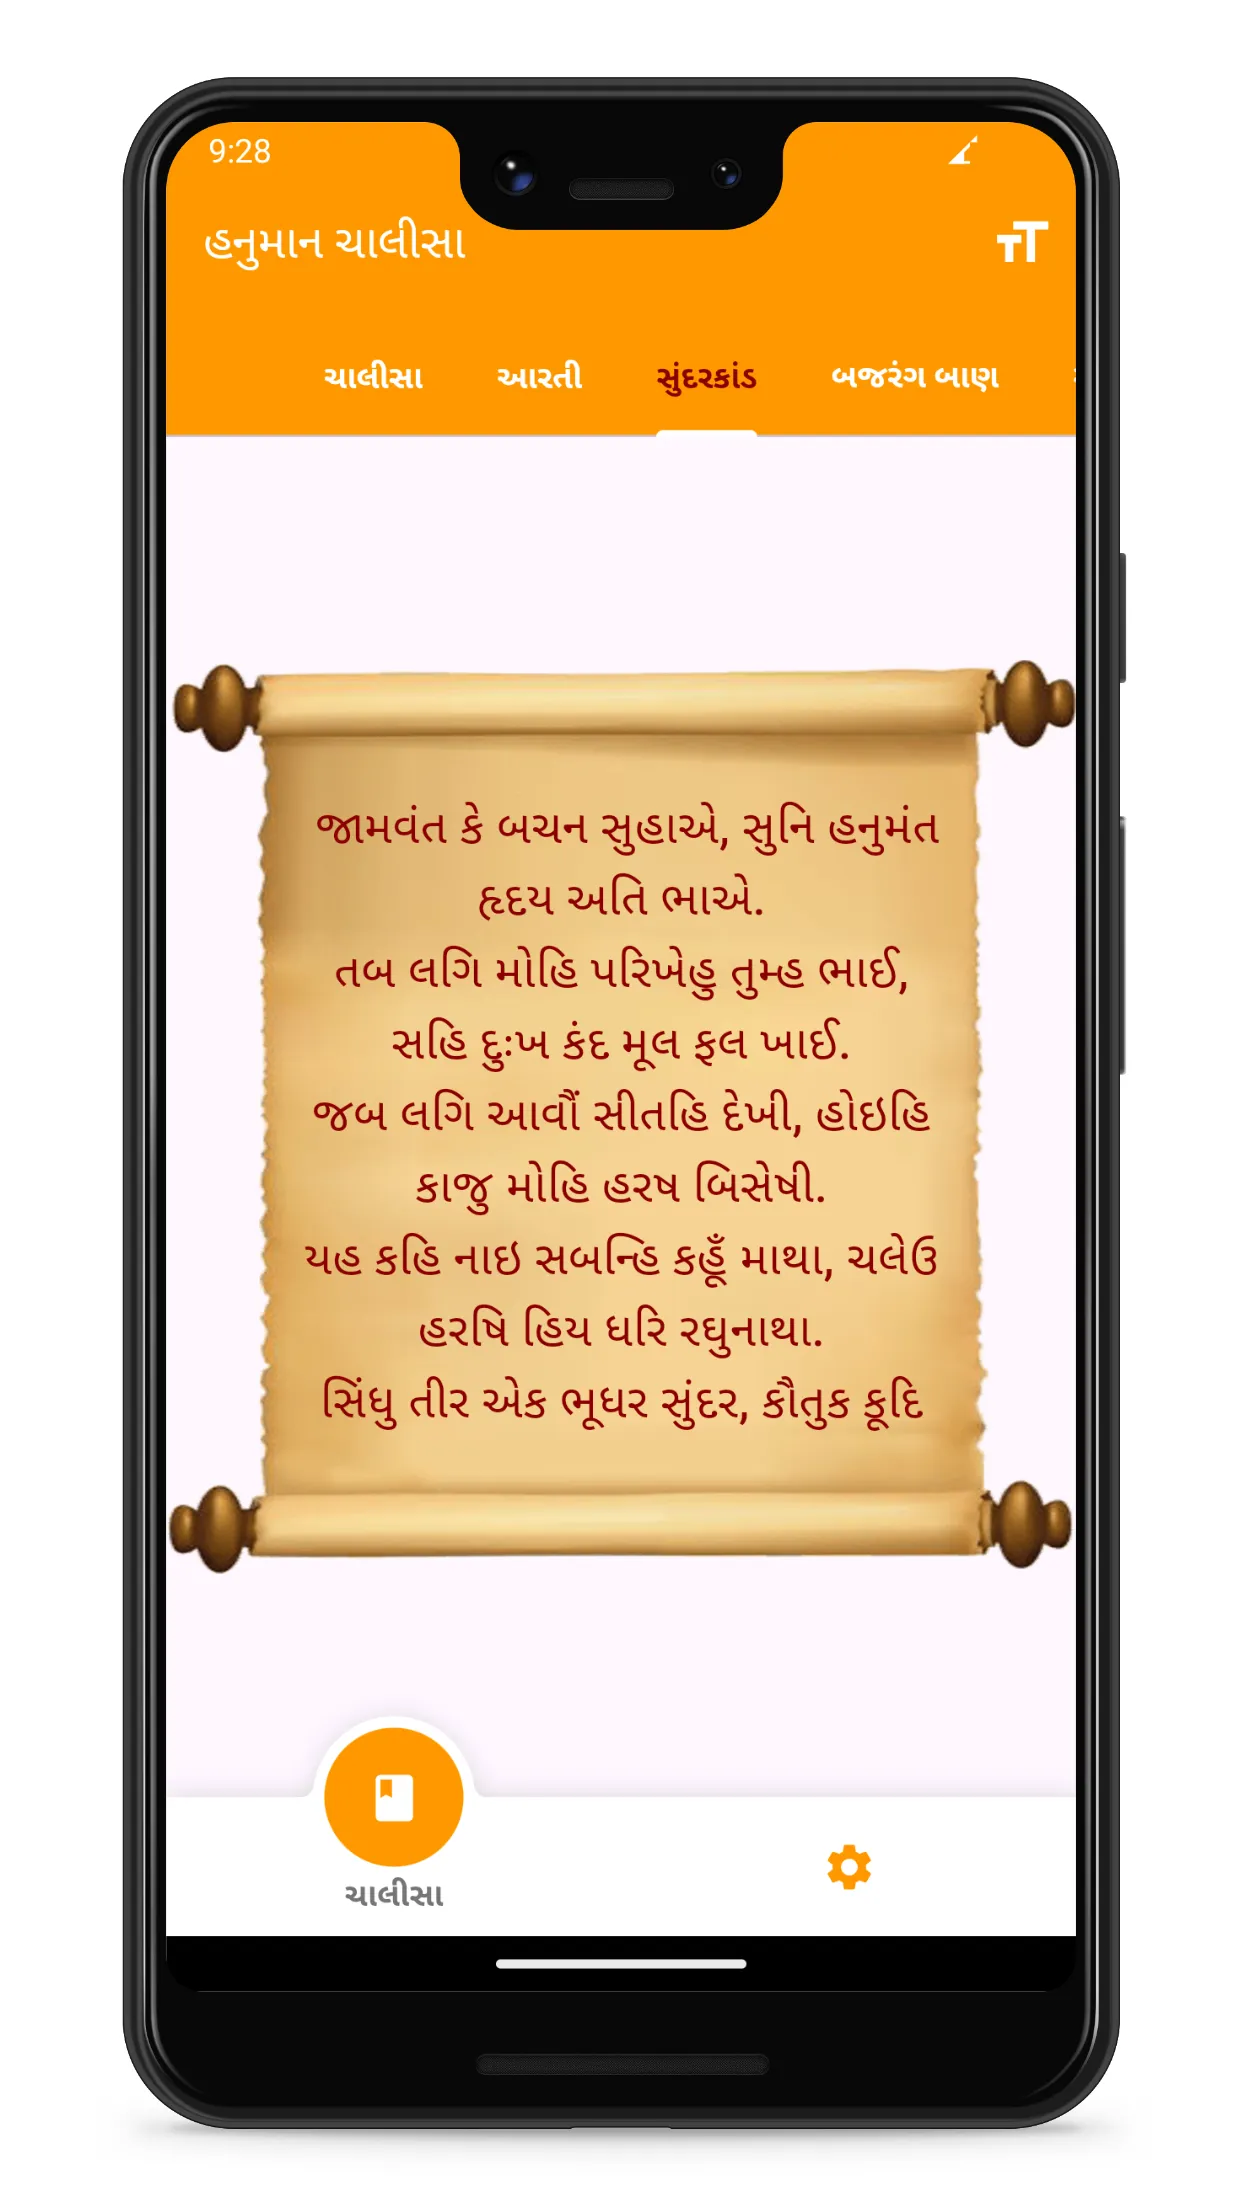 9:28
હનુમાન ચાલીસા
ચાલીસા આરતી સુંદરકાંડ બજરંગ બાણ
જામવંત કે બચન સુહાએ, સુનિ હનુમંત
હૃદય અતિ ભાએ.
તબ લગિ મોહિ પરિખેહુ તુમ્હ ભાઈ,
સહિ દુઃખ કંદ મૂલ ફલ ખાઈ.
જબ લગિ આવૌં સીતહિ દેખી, હોઇહિ
કાજુ મોહિ હરષ બિસેષી.
યહ કહિ નાઇ સબન્હિ કહૂઁ માથા, ચલેઉ
હરષિ હિય ધરિ રઘુનાથા.
સિંધુ તીર એક ભૂધર સુંદર, કૌતુક કૂદિ
ચાલીસા